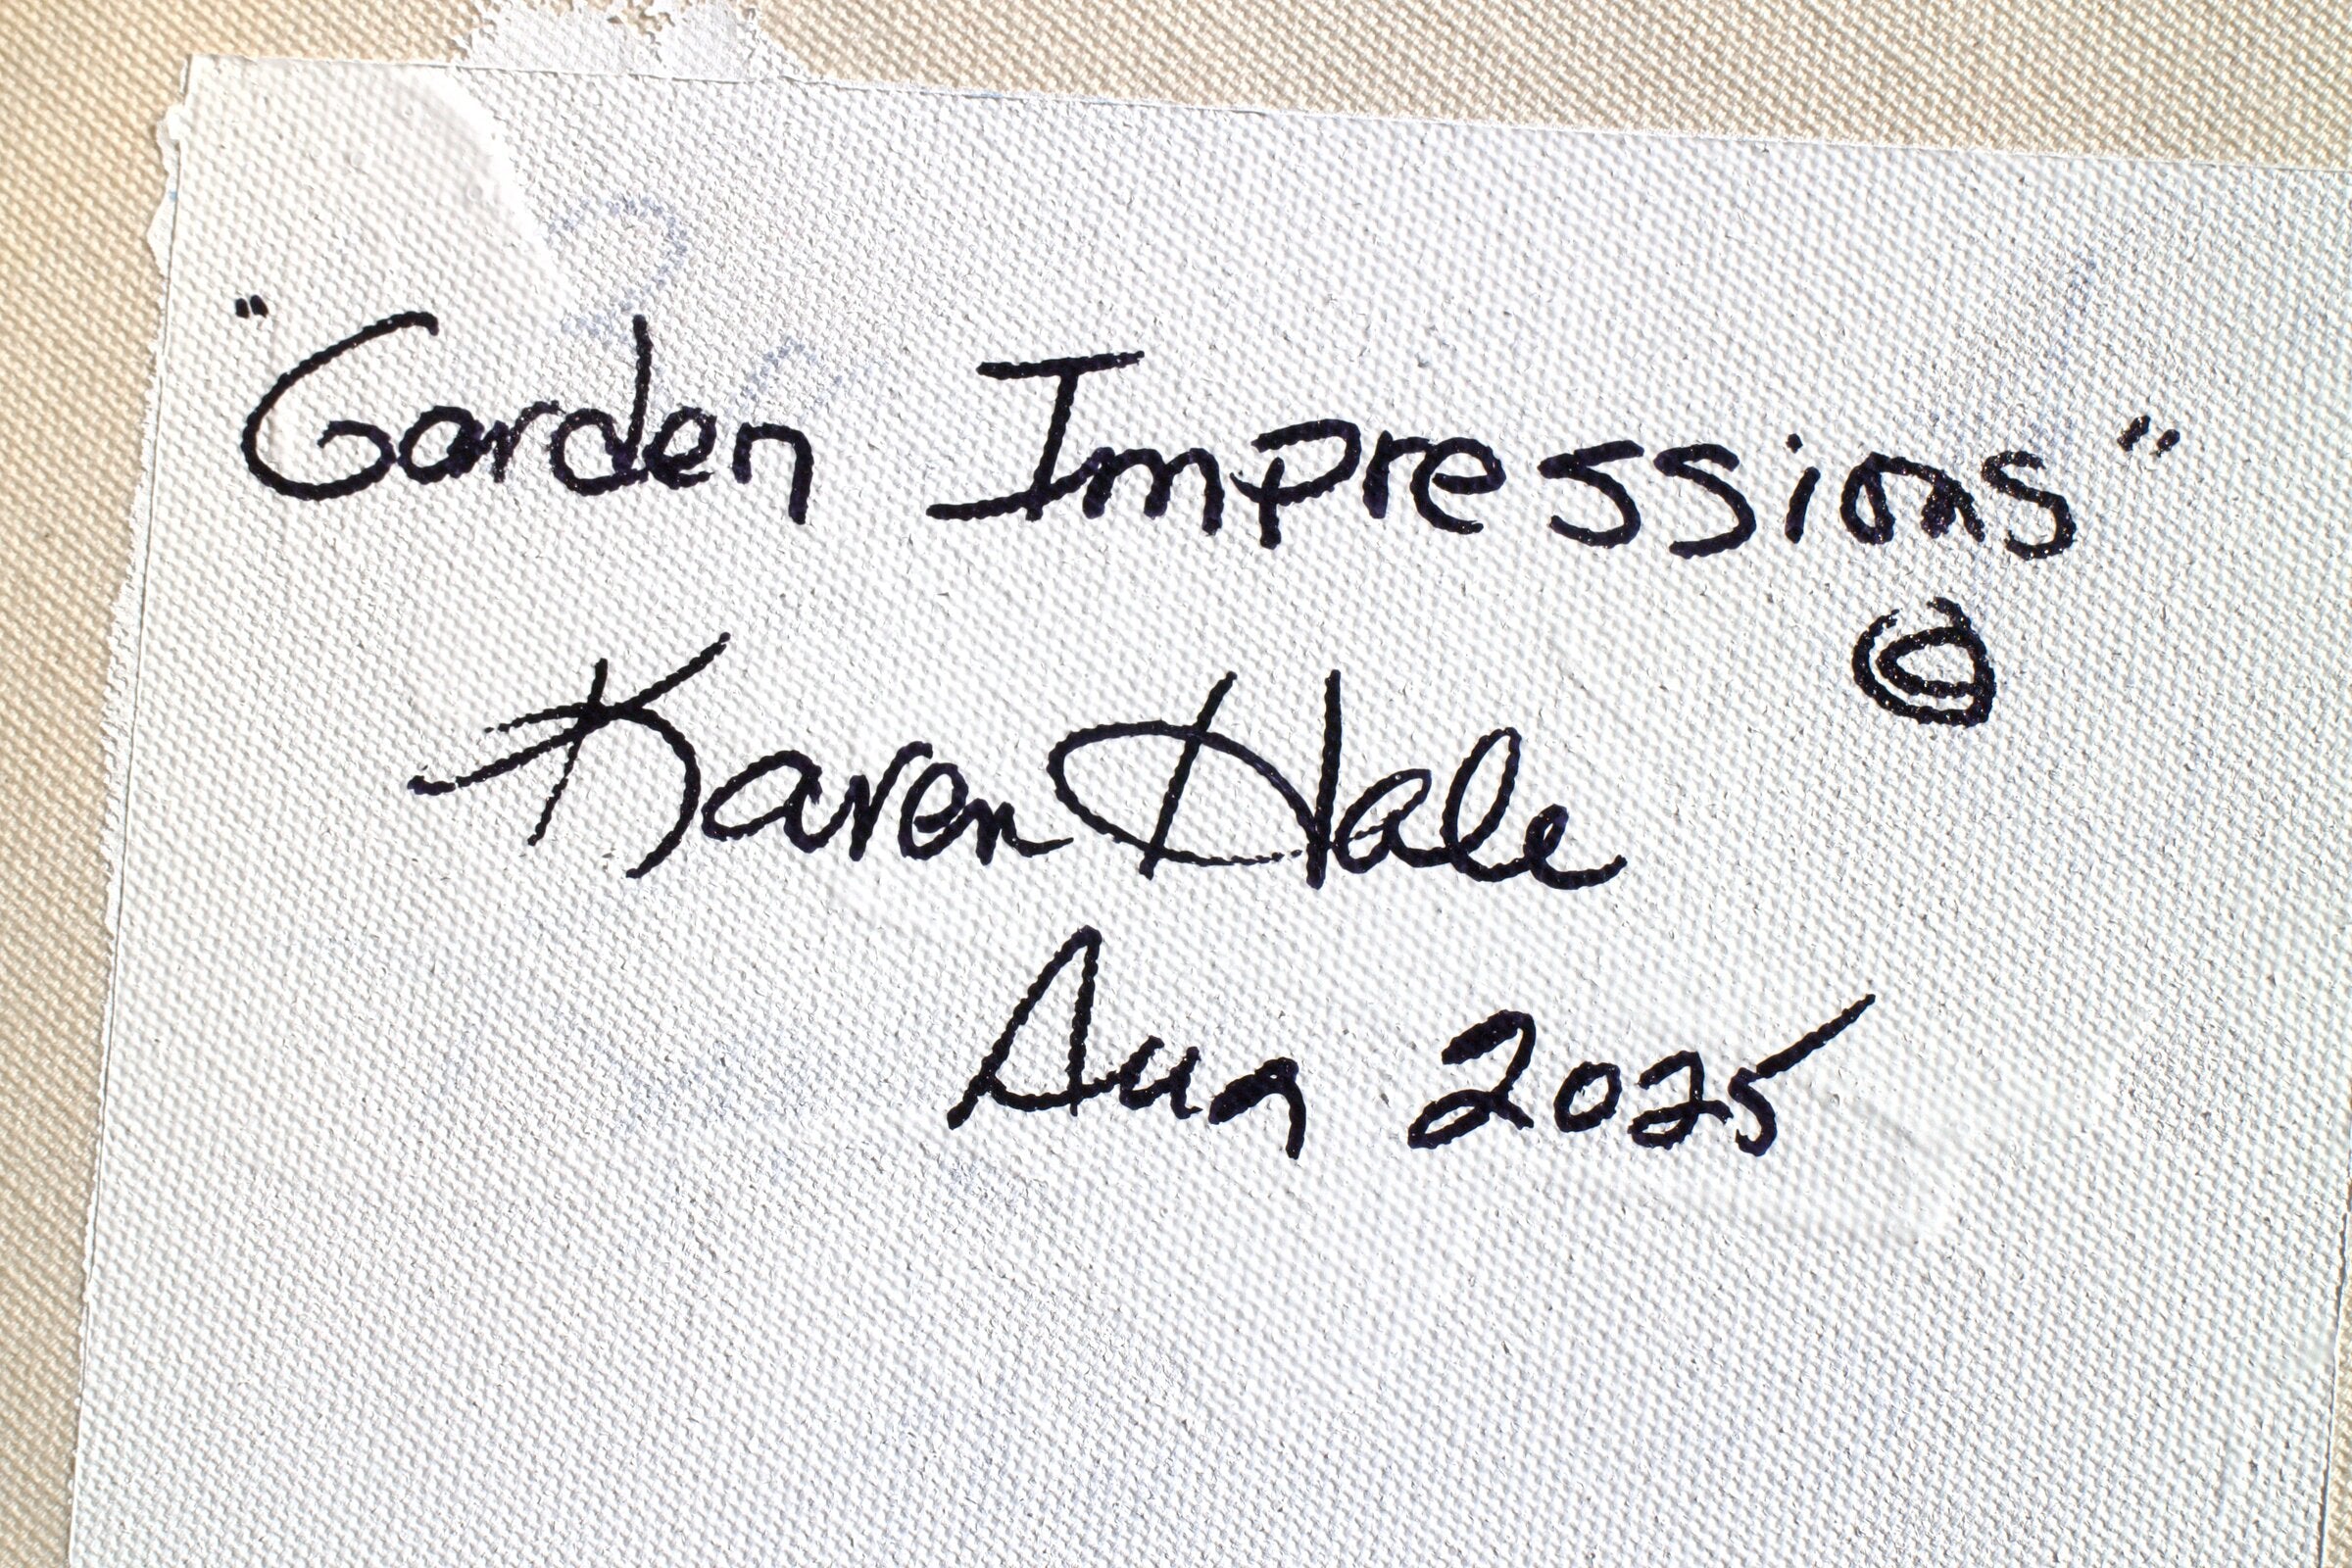 "Garden Impressions"
©
Karen Hale
Aug 2025